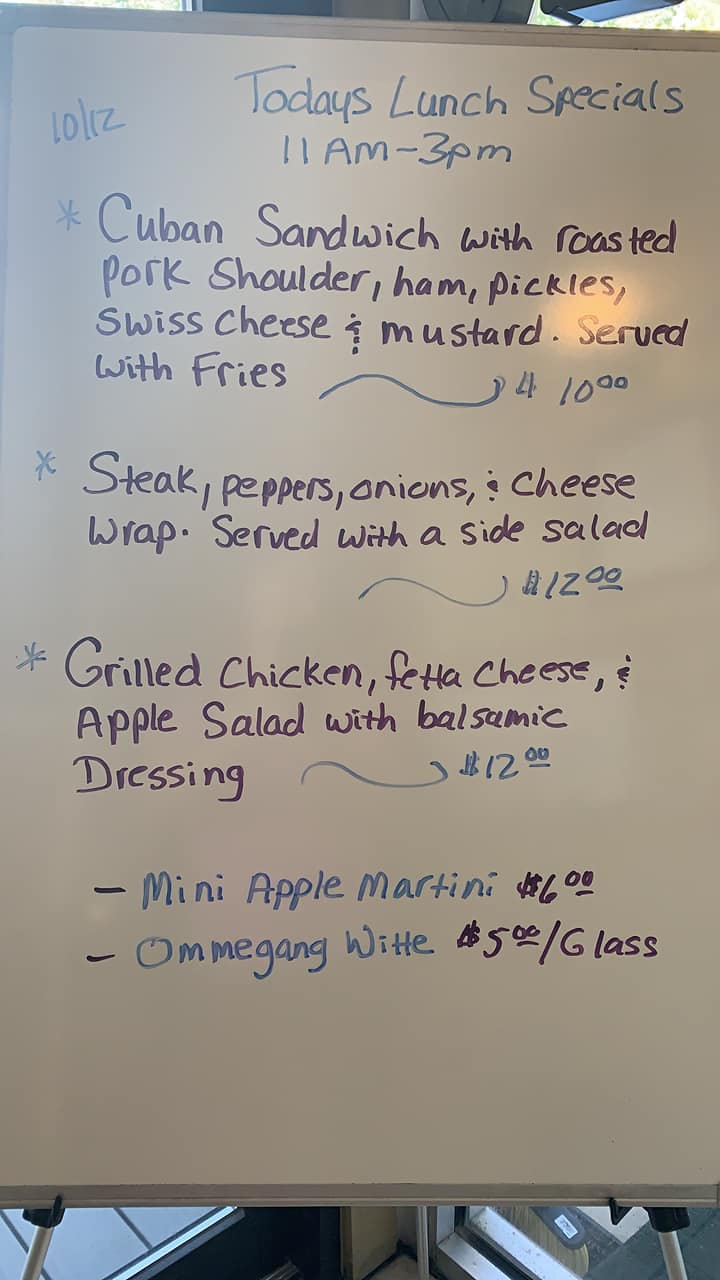 10/12
Todays Lunch Specials
11 AM-3pm
* Cuban Sandwich with roasted
pork Shoulder, ham, pickles,
Swiss Cheese & mustard. Served
with Fries $ 10.00
* Steak, peppers, onions, & cheese
Wrap. Served with a side salad
$12.00
* Grilled Chicken, fetta cheese, &
Apple Salad with balsamic
Dressing $12.00
- Mini Apple Martini $6.00
- Ommegang Witte $5.00/Glass